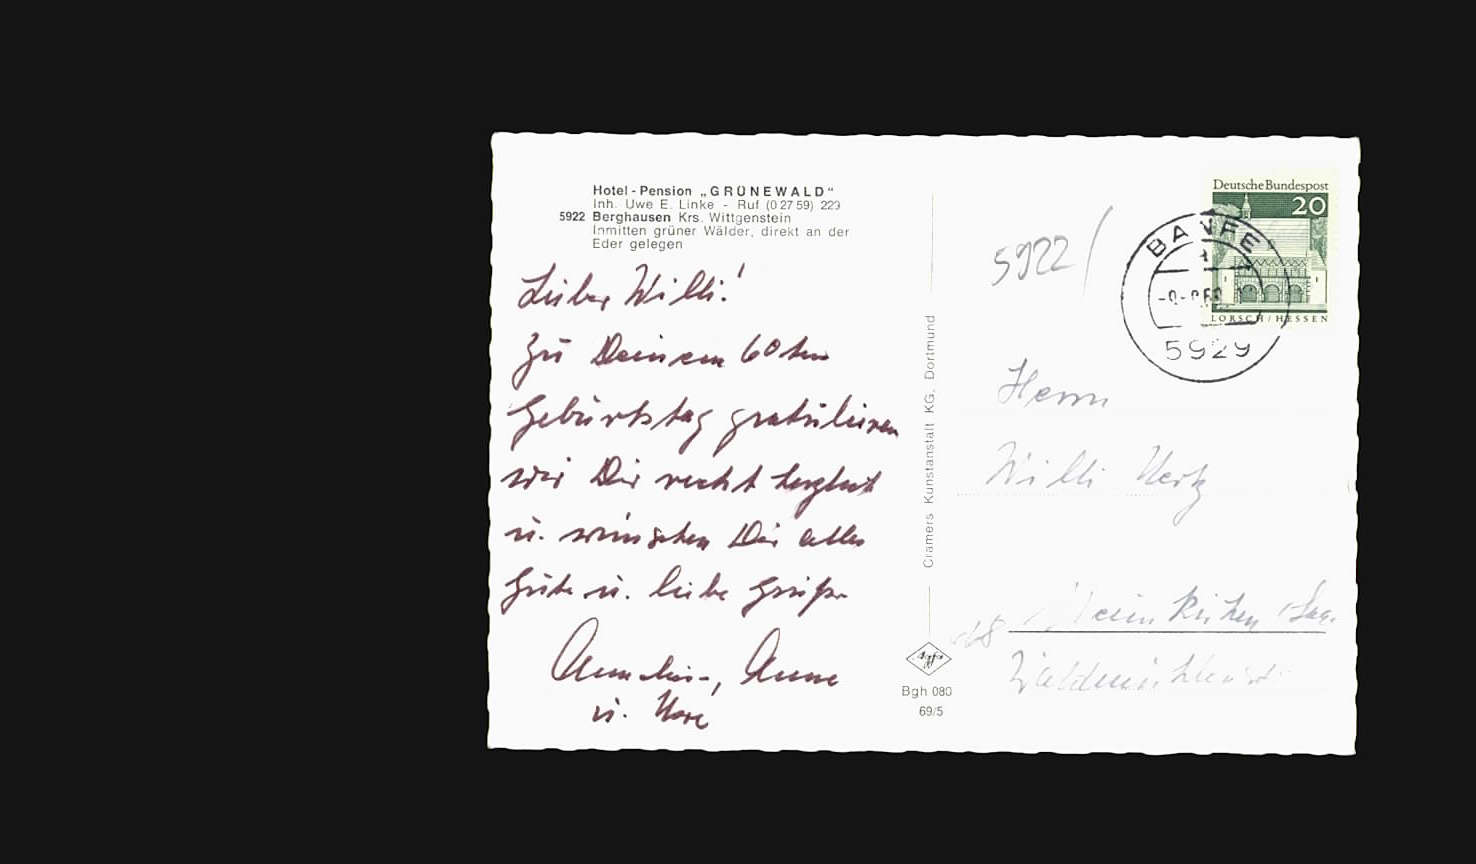 Hotel - Pension „GRÜNEWALD“
Inh. Uwe E. Linke - Ruf (0 27 59) 223
5922 Berghausen Krs. Wittgenstein
Inmitten grüner Wälder, direkt an der
Eder gelegen
Lieber Willi!
Zu Deinem 60 ten
Geburtstag gratulieren
wir Dir recht herzlich
u. wünschen Dir alles
Gute u. liebe Grüße
Anneliese, Anne
u.
Cramers Kunstanstalt KG, Dortmund
Bgh 080
69/5
Deutsche Bundespost
20
LORSCH / HESSEN
BANFE
5929
5922
Herrn
Willi